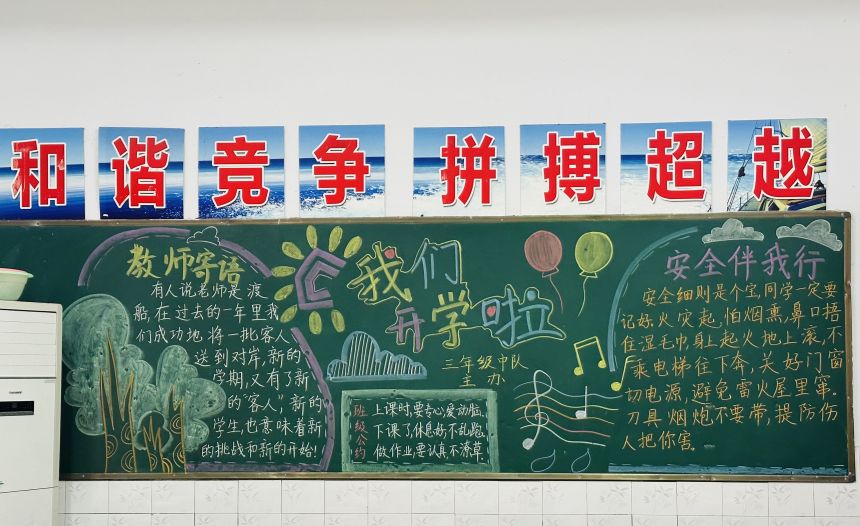 和谐竞争 拼搏超越
教师寄语
有人说老师是渡
船,在过去的一年里我
们成功地将一批客人
送到对岸,新的
学期,又有了新
的“客人”,新的
学生,也意味着新
的挑战和新的开始!
我们
开学啦
三年级中队
主办
班级公约
上课时,要专心爱动脑。
下课了休息好不乱跑。
做作业,要认真不潦草。
安全伴我行
安全细则是个宝,同学一定要
记好。火灾起,怕烟熏,鼻口捂
住湿毛巾,身上起火地上滚,不
乘电梯往下奔,关好门窗
切电源,避免雷火屋里窜。
刀具烟炮不要带,提防伤
人把你害。